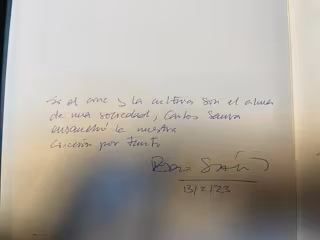 Si el cine y la cultura son el alma
de una sociedad, Carlos Saura
ensanchó la nuestra
Gracias por tanto
13/2/23